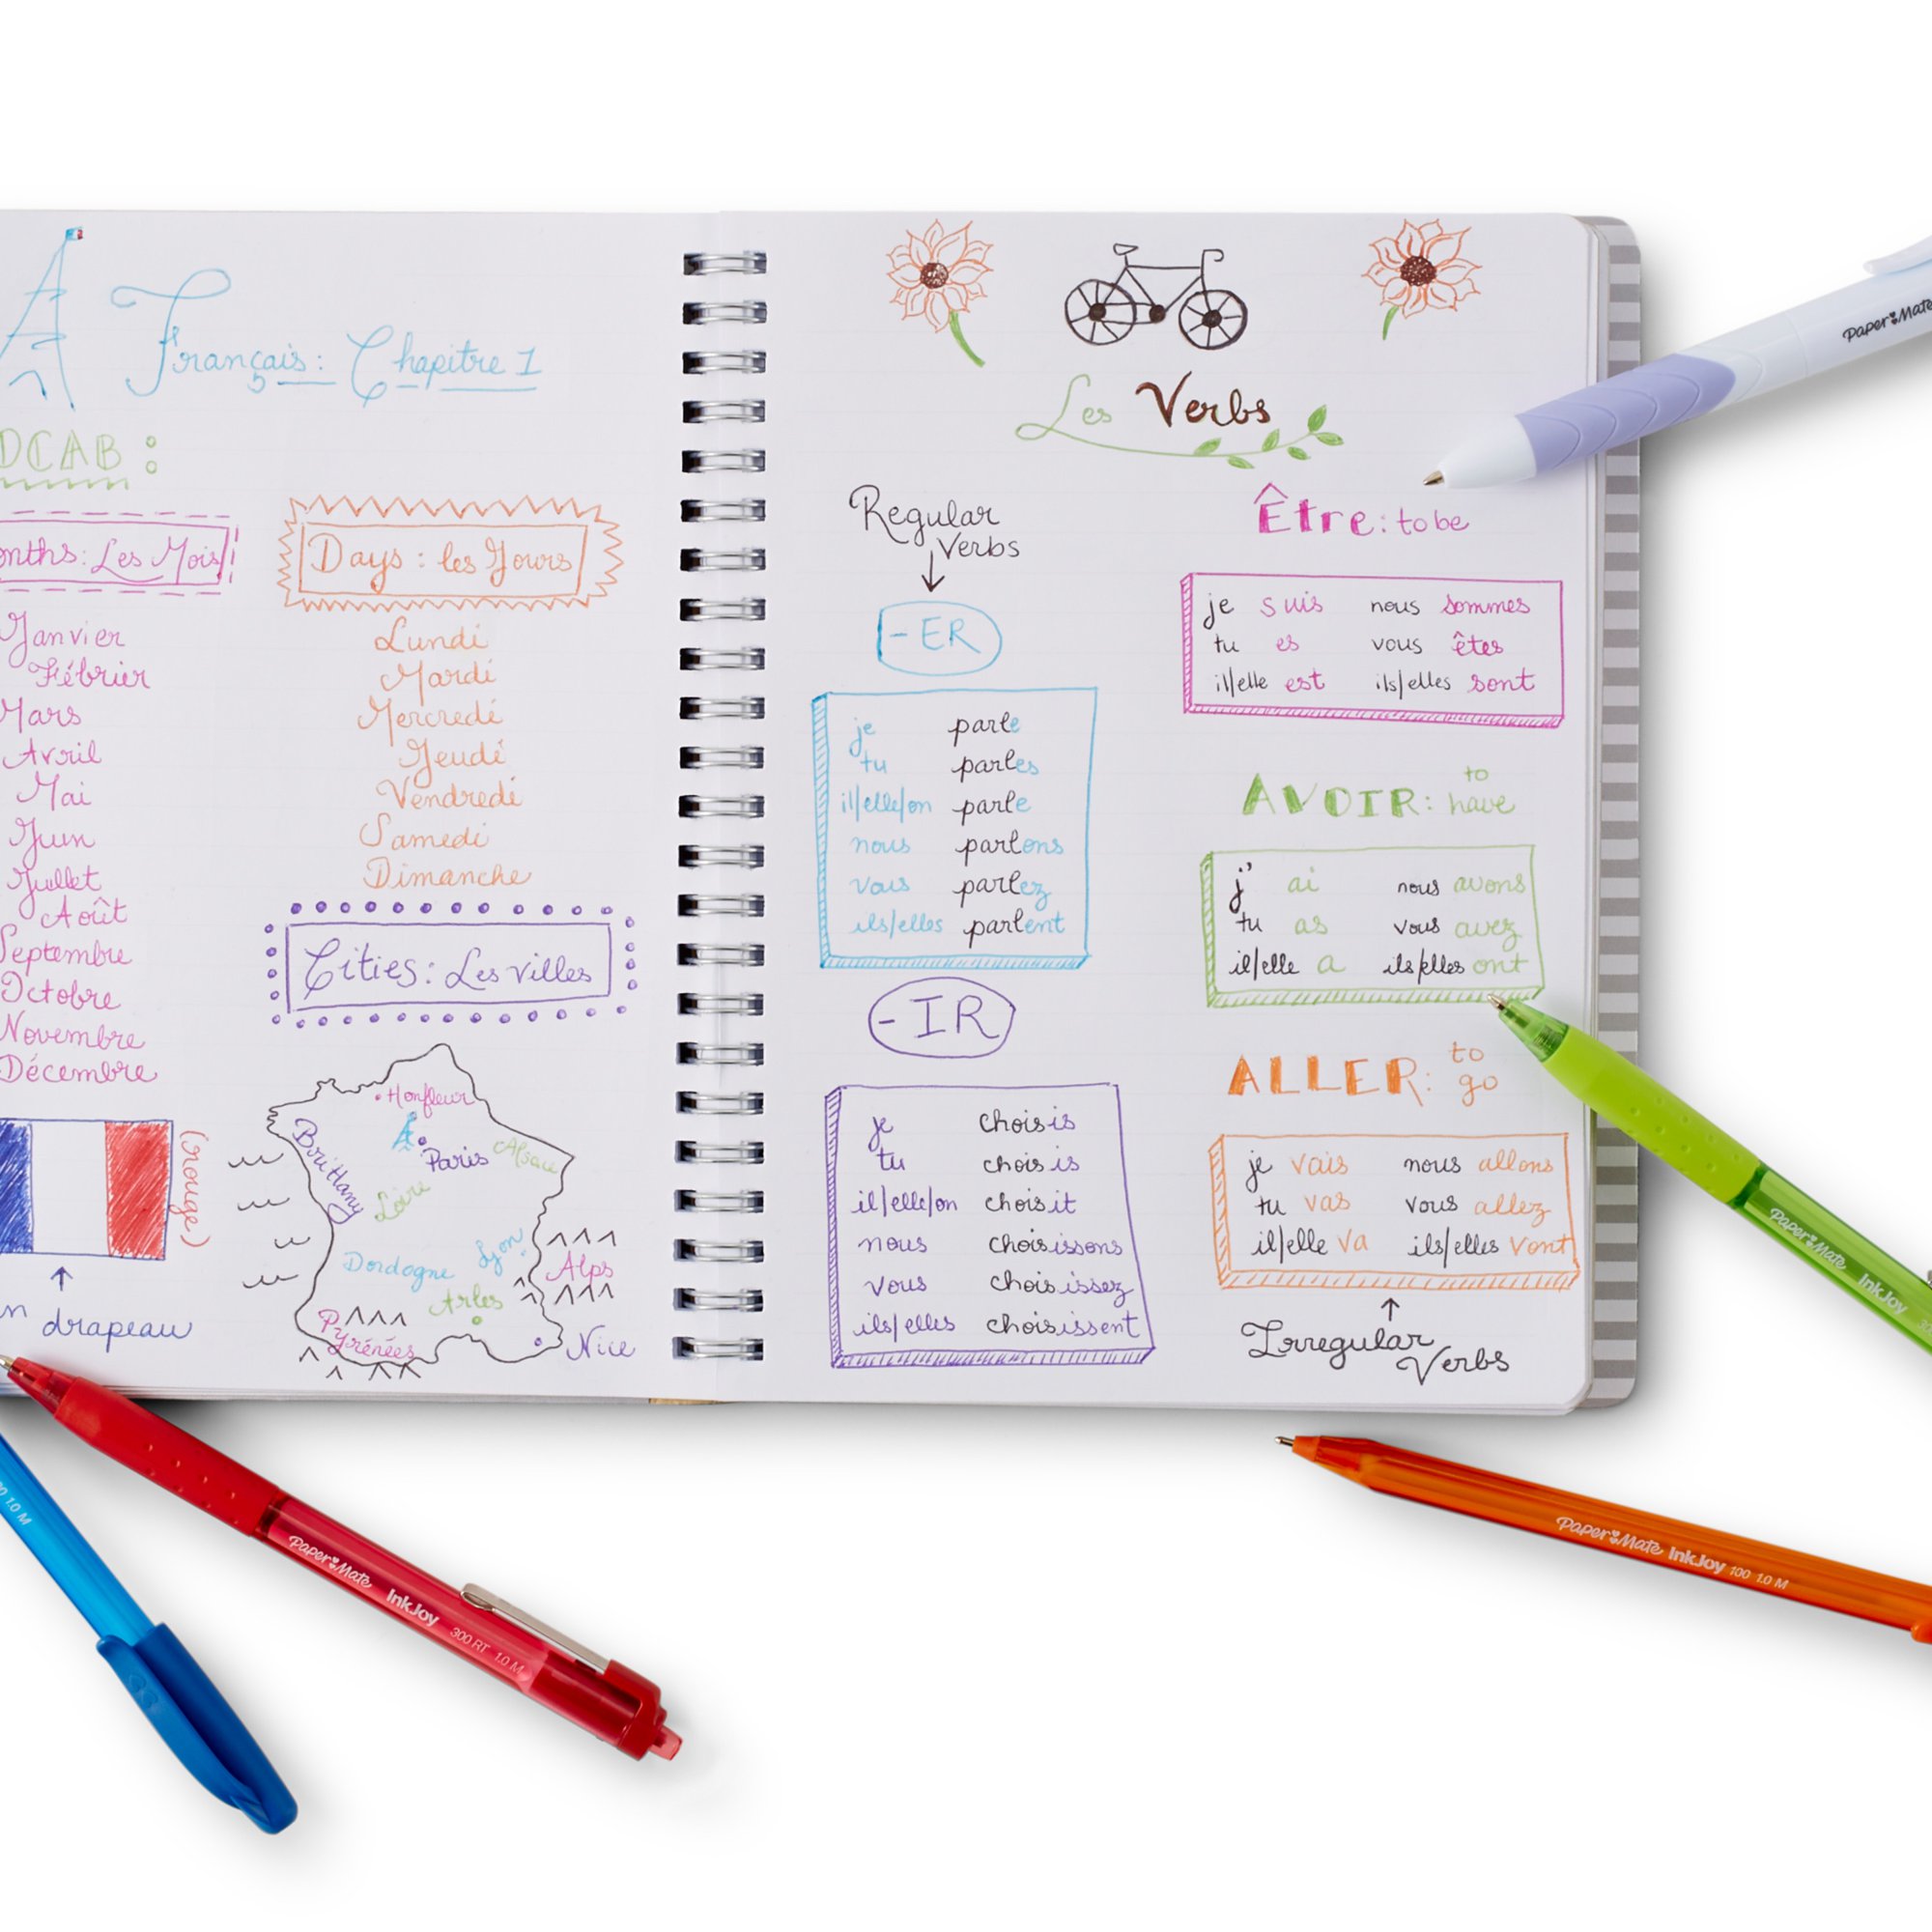 Français: Chapitre 1
OCAB:
onths: Les Mois
Janvier
Fébrier
Mars
Avril
Mai
Juin
Juillet
Août
Septembre
Octobre
Novembre
Décembre
(rouge)
n drapeau
Days: les Jours
Lundi
Mardi
Mercredi
Jeudi
Vendredi
Samedi
Dimanche
Cities: Les villes
Honfleur
Brittany
Paris
Alsace
Loire
Dordogne
Lyon
Alps
Arles
Pyrénées
Nice
Les Verbs
Regular
Verbs
-ER
je parle
tu parles
il/elle/on parle
nous parlons
vous parlez
ils/elles parlent
-IR
je choisis
tu choisis
il/elle/on choisit
nous choisissons
vous choisissez
ils/elles choisissent
Être: to be
je suis nous sommes
tu es vous êtes
il/elle est ils/elles sont
AVOIR: to have
j' ai nous avons
tu as vous avez
il/elle a ils/elles ont
ALLER: to go
je vais nous allons
tu vas vous allez
il/elle va ils/elles vont
Irregular
Verbs
Paper Mate
Paper Mate InkJoy
Paper Mate InkJoy 100 1.0 M
Paper Mate InkJoy 300 RT 1.0 M
1.0 M